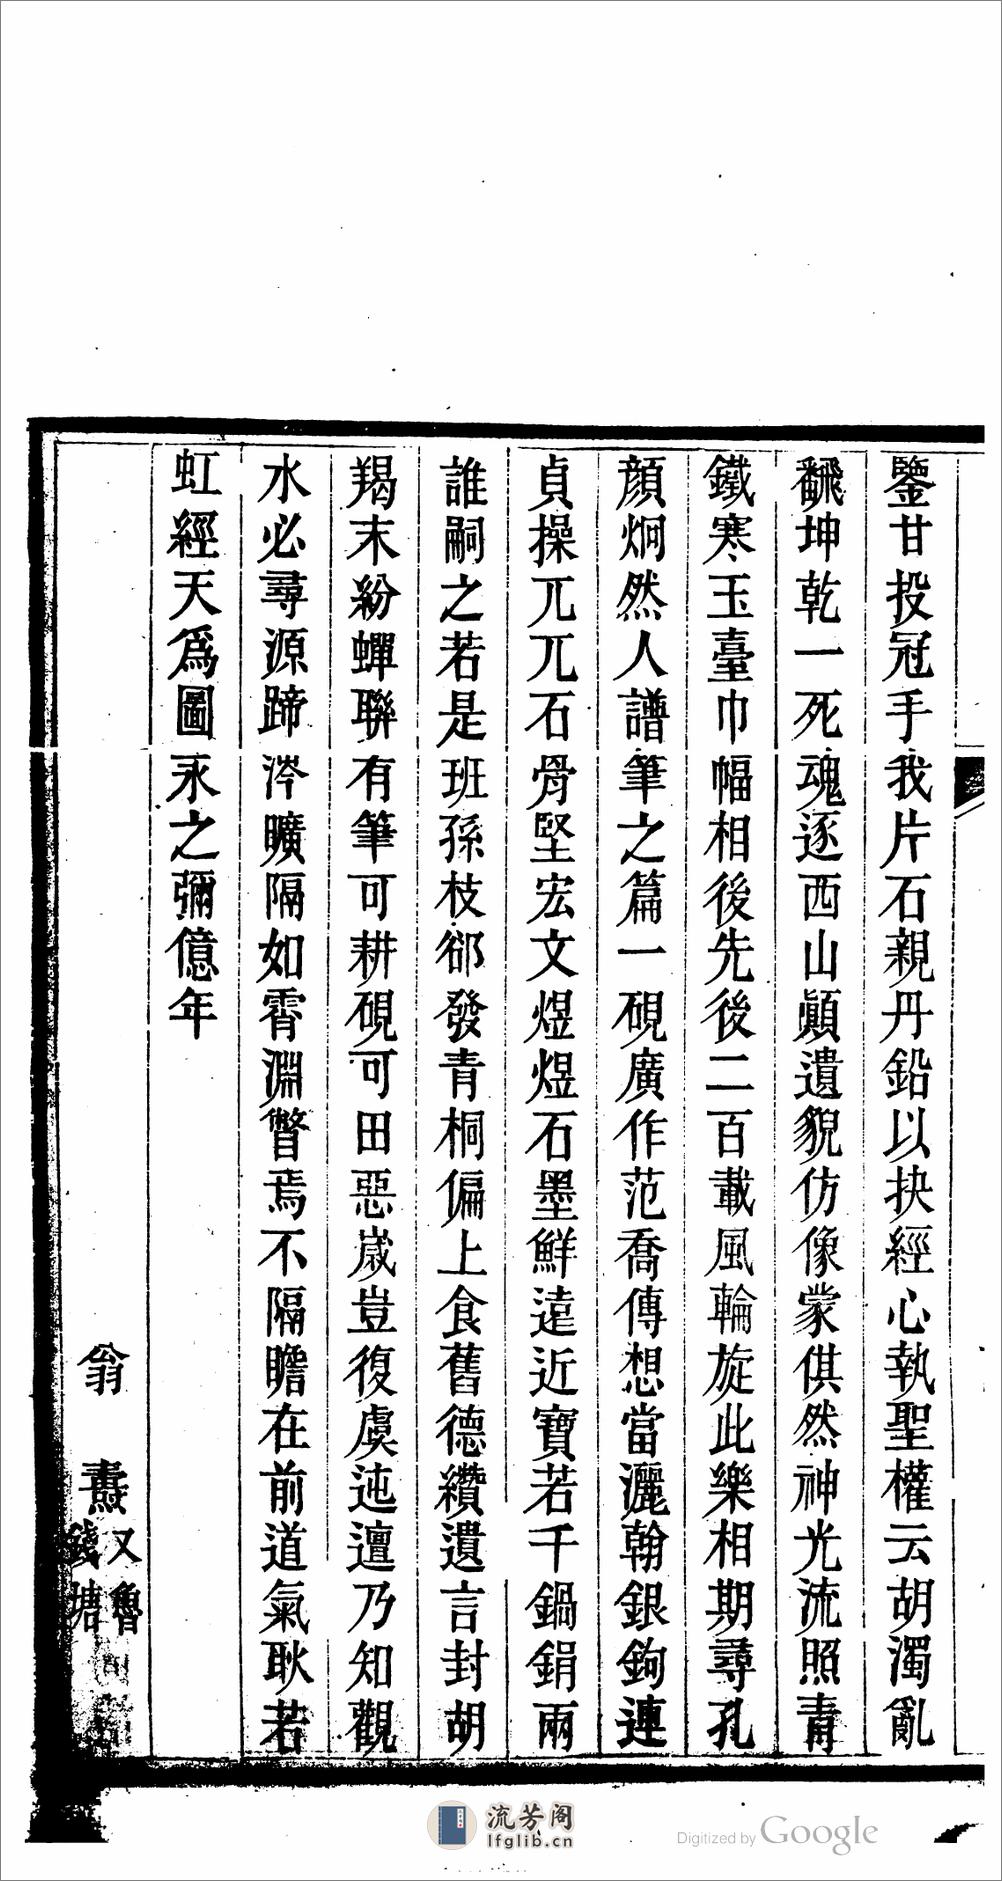 鑒甘投冠手我片石親丹鉛以抉經心執聖權云胡濁亂
飜坤乾一死魂逐西山顚遺貌仿像蒙倛然神光流照青
鐵寒玉臺巾幅相後先後二百載風輪旋此樂相期尋孔
顔炯然人譜筆之篇一硯廣作范喬傳想當灑翰銀鉤連
貞操兀兀石骨堅宏文煜煜石墨鮮遠近寶若千鍋鋗兩
誰嗣之若是班孫枝郤發青桐偏上食舊德纘遺言封胡
羯末紛蟬聯有筆可耕硯可田惡歲豈復虞迍邅乃知觀
水必尋源蹄涔曠隔如霄淵瞥焉不隔瞻在前道氣耿若
虹經天爲圖永之彌億年
翁燾
又魯
錢塘
流芳阁
lfglib.cn
Digitized by Google